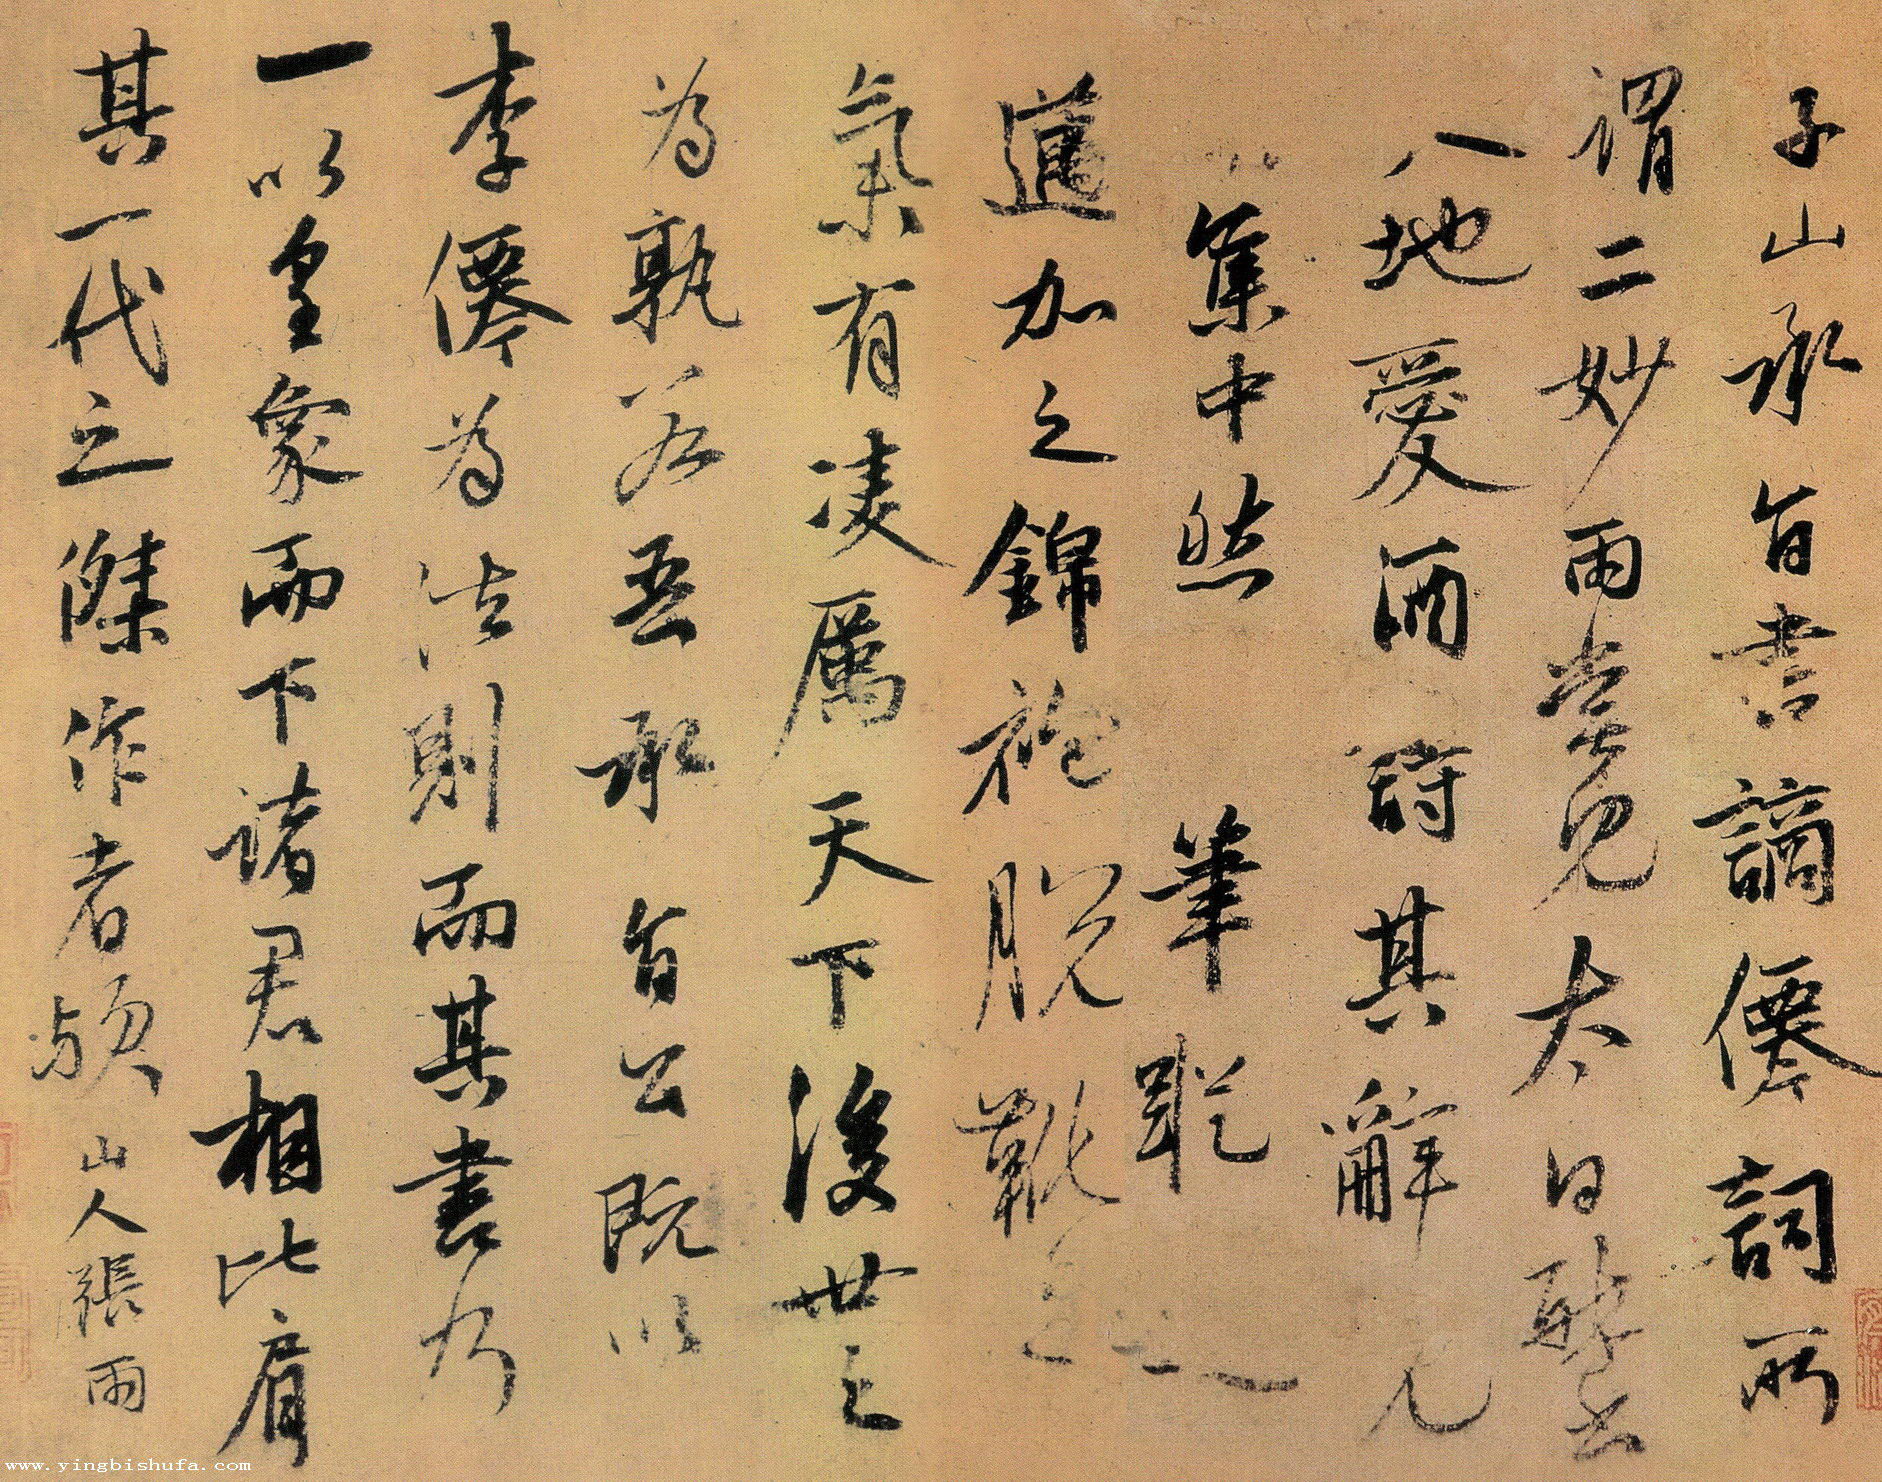 子山承旨書謫僊詞所
謂二妙雨嘗見太白醉書
八地愛酒詩其辭見
集中然筆蹤
遒加之錦袍脫靴之
氣有凌厲天下後世之
為孰若吾承旨公既以
李僊為法則而其書乃
一以皇象而下諸君相比肩
其一代之傑作者歟 山人張雨
www.yingbishufa.com